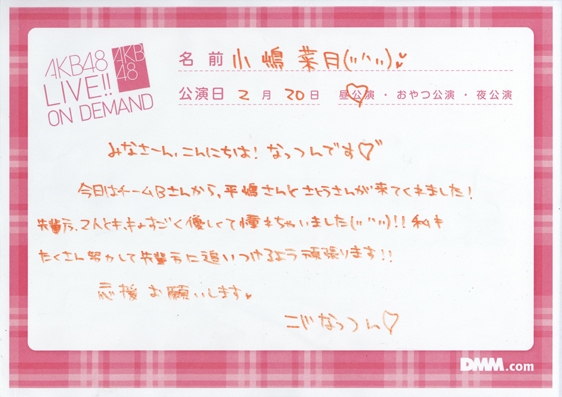 AKB48
LIVE!!
ON DEMAND
AKB
48
名前 小嶋菜月(''^'')♥
公演日 2月20日 昼公演・おやつ公演・夜公演
みなさーん、こんにちは!なっつんです♡
今日はチームBさんから、平嶋さんとさとうさんが来てくれました!
先輩方、2人とも、すごく優しくて憧れちゃいました(''^'')!!私も
たくさん努力して先輩方に追いつけるよう頑張ります!!
応援お願いします♥
こじなっつん♡
DMM.com